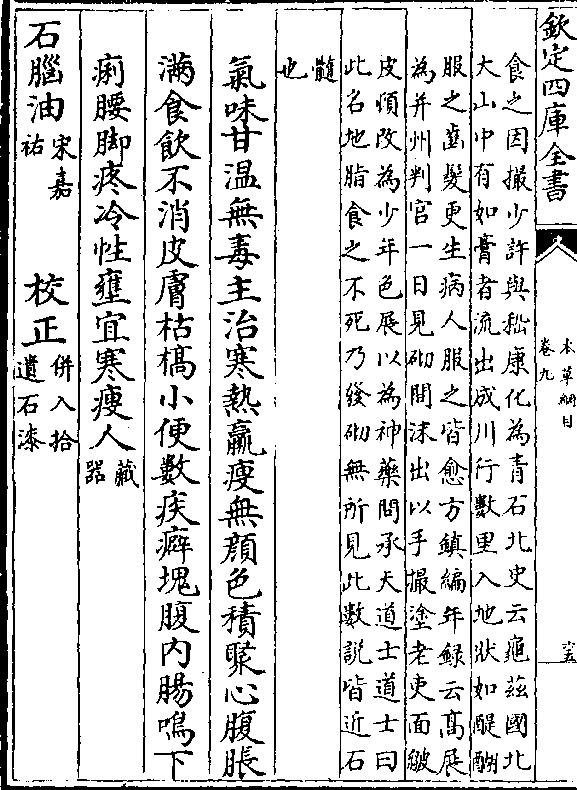 欽定四庫全書
本草綱目
卷九
食之因撮少許與嵇康化為青石北史云龜茲國北
大山中有如膏者流出成川行數里入地狀如醍醐
服之齒髮更生病人服之皆愈方鎮編年録云髙展
為并州判官一日見砌間沫出以手撮塗老吏面皺
皮頓改為少年色展以為神藥問承天道士道士曰
此名地脂食之不死乃發砌無所見此數説皆近石
髓
也
氣味甘温無毒主治寒熱羸瘦無顔色積聚心腹脹
滿食飲不消皮膚枯槁小便數疾癖塊腹内腸鳴下
痢腰脚疼冷性壅宜寒瘦人藏器
石腦油宋嘉祐 校正併入拾遺石漆